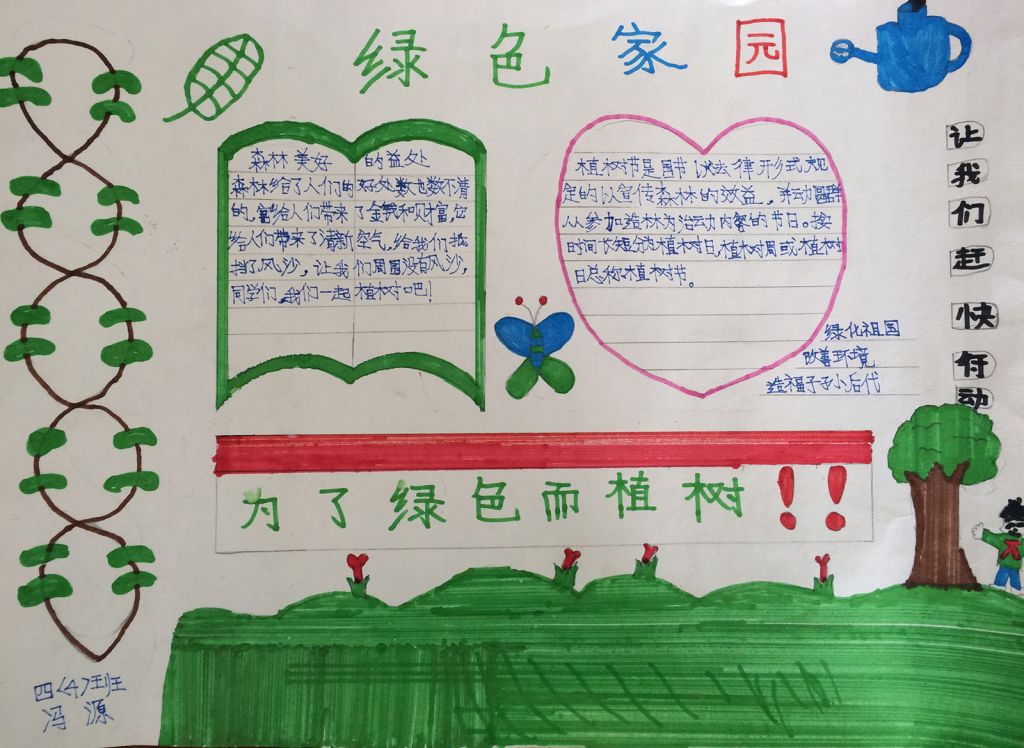 绿色家园
森林美好 的益处
森林给了人们的好处数也数不清
的,给人们带来了金钱和财富,也
给人们带来了清新空气,给我们抵
挡了风沙,让我们周围没有风沙,
同学们,我们一起植树吧!
植树节是国节以法律形式规
定的以宣传森林的效益,并动员群
从参加造林为活动内容的节日。按
时间长短分为植树日,植树周或植树
日总称植树节。
绿化祖国
改善环境
造福子孙后代
让我们赶快行动
为了绿色而植树!!
四〈4〉班
冯源